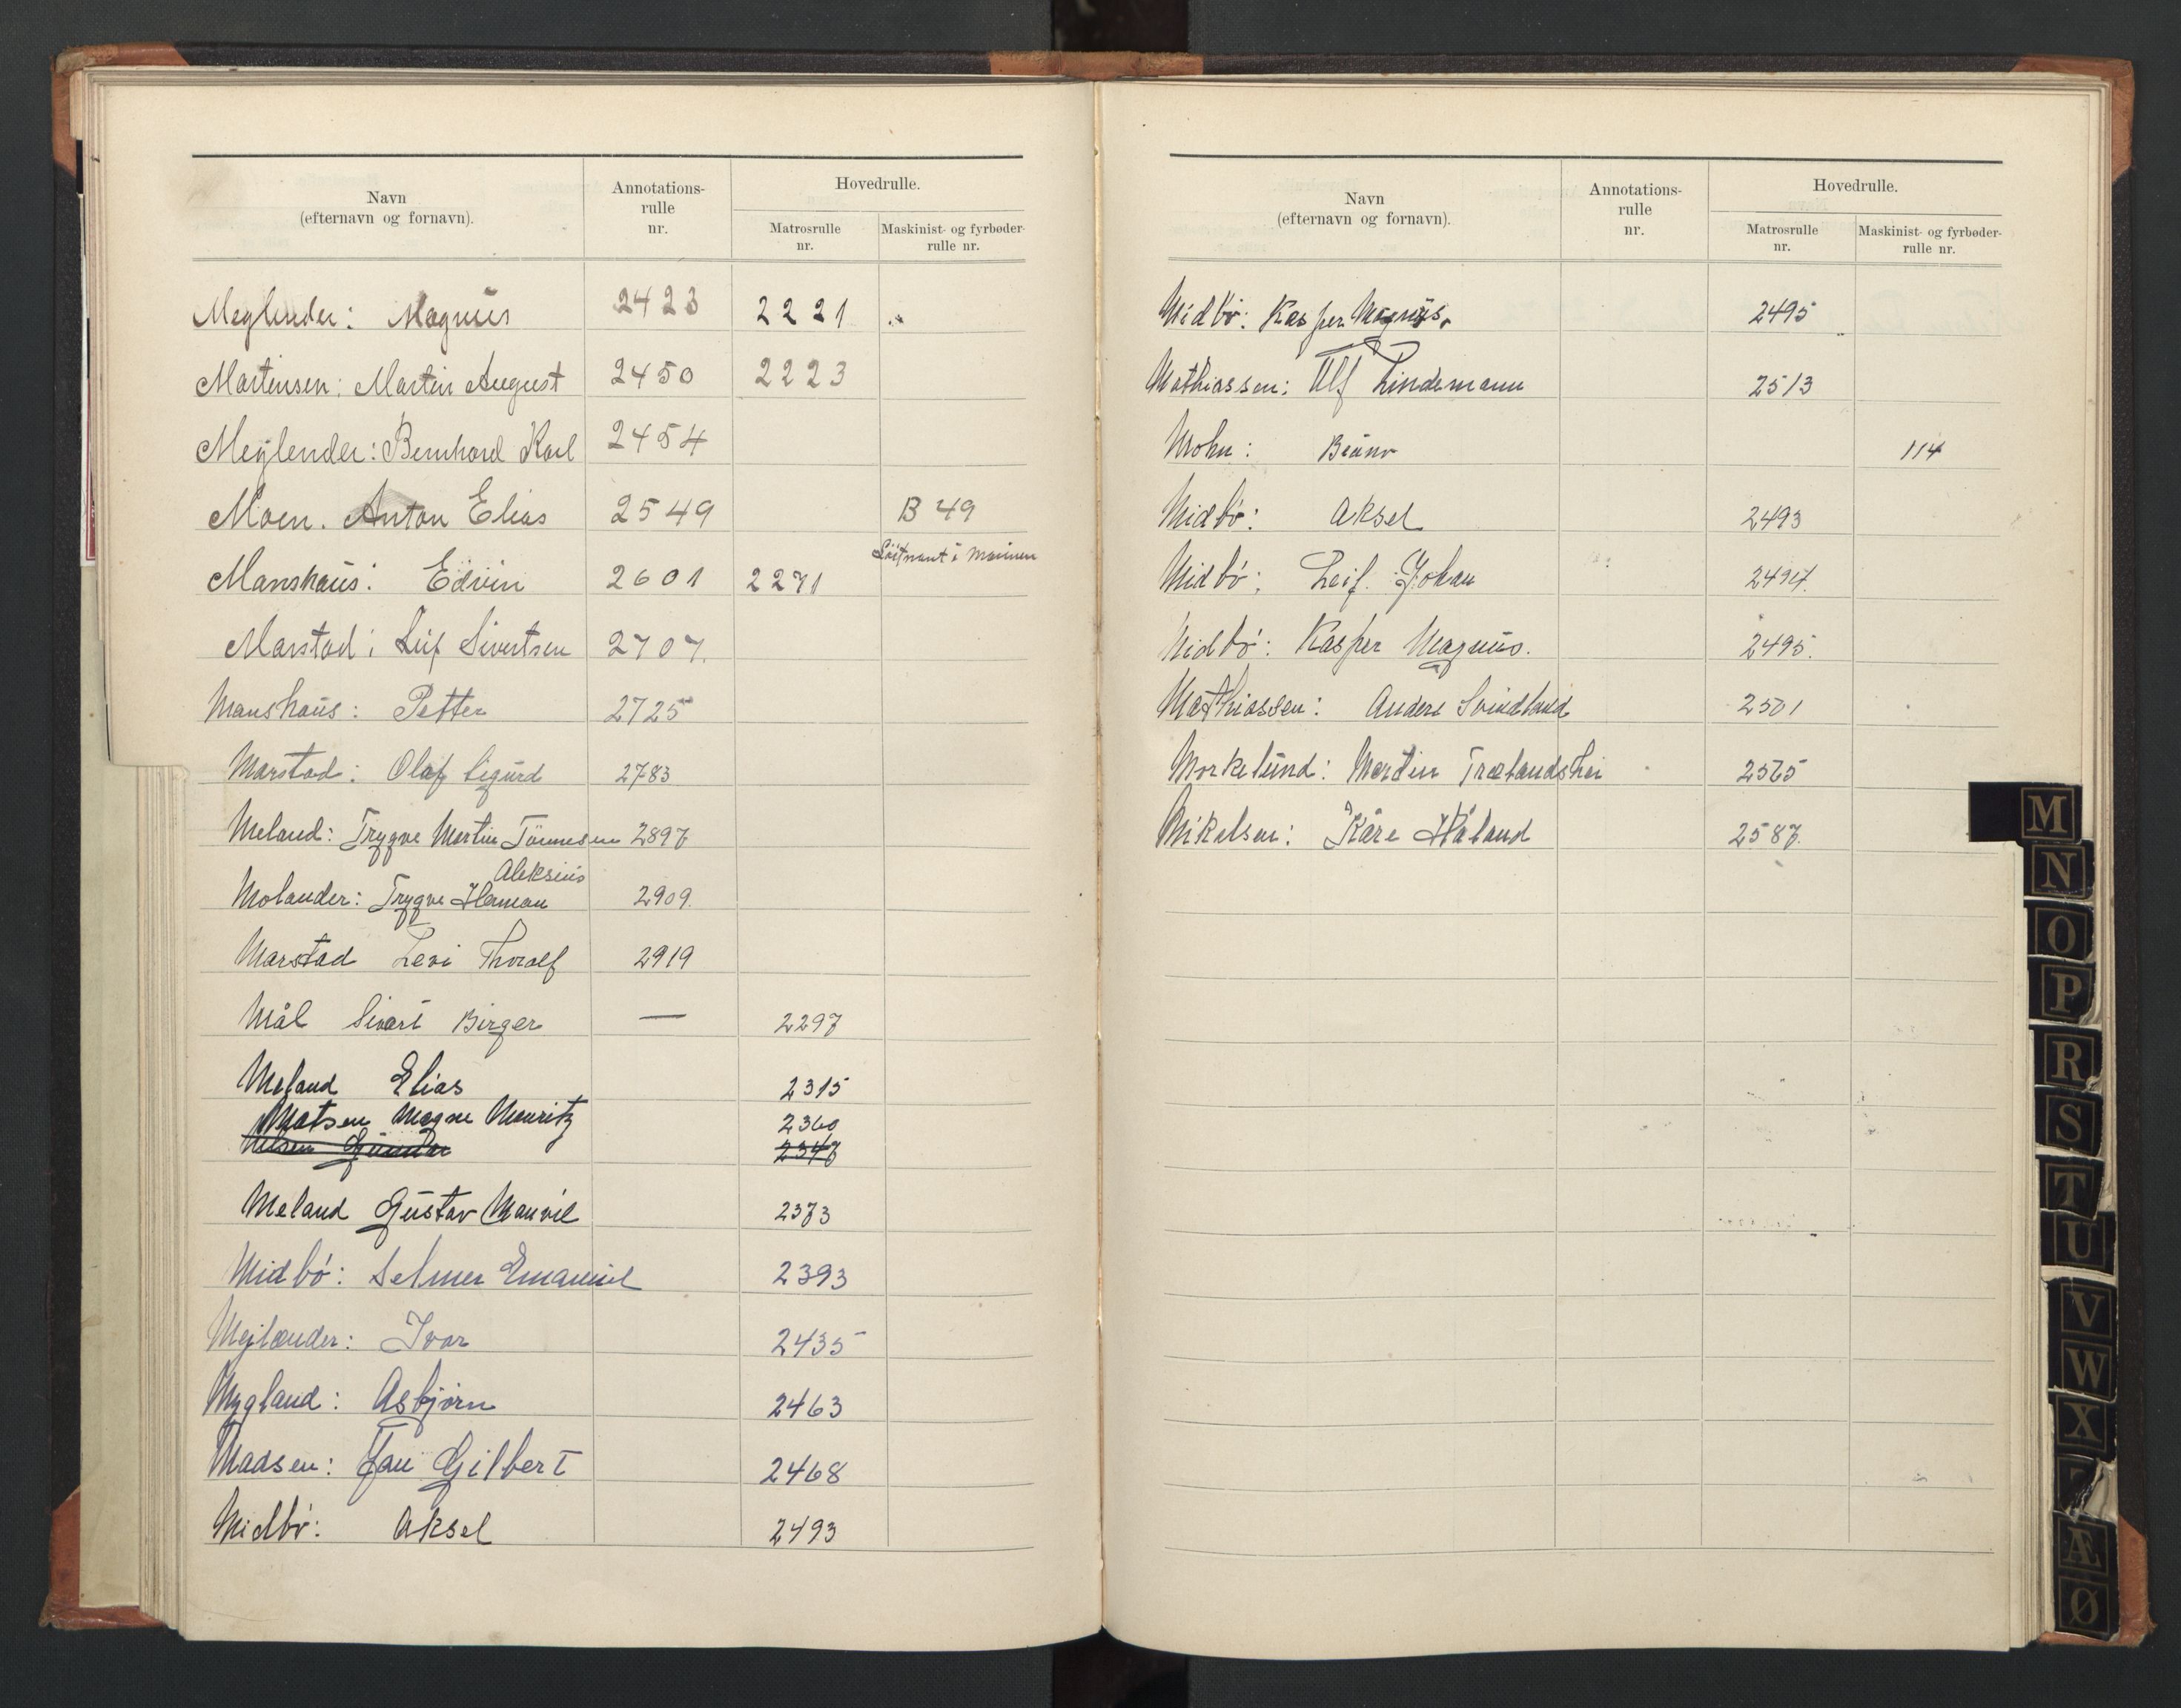 Navn
(efternavn og fornavn).
Annotations-
rulle
nr.
Hovedrulle.
Matrosrulle
nr.
Maskinist- og fyrbøder-
rulle nr.
Meglender: Magnus 2423 2221
Martinsen: Martin August 2450 2223
Mejlender: Bernhard Karl 2454
Moen. Anton Elias 2549 B 49
Löitnant i Marinen
Manshaus: Edvin 2601 2271
Marstad: Leif Sivertsen 2707.
Manshaus: Petter 2725
Marstad: Olaf Sigurd 2783
Meland: Trygve Martin Tönnesen 2897
Aleksius
Molander: Trygve Herman 2909.
Marstad Levi Thoralf 2919
Mål Sivert Birger — 2297
Meland Elias 2315
Matsen Magne Mouritz 2360
Gunnar 2347
Meland Gustav Manvil 2373
Midbö: Selmer Emanuel 2393
Mejlænder: Ivar 2435
Mygland: Asbjörn 2463
Madsen: Jan Gilbert 2468
Midbö: Aksel 2493
Navn
(efternavn og fornavn).
Annotations-
rulle
nr.
Hovedrulle.
Matrosrulle
nr.
Maskinist- og fyrbøder-
rulle nr.
Midbö: Kasper Magnus. 2495
Mathiassen: Ulf Lindemann 2513
Mohn: 114
Midbö: Aksel 2493
Midbö: Leif Johan 2494.
Midbö: Kasper Magnus. 2495.
Mathiassen: Anders Svindland 2501
Morkelund: Martin Trælandshei 2565
Mikalsen: Kåre Håland 2587.
M
N
O
P
R
S
T
U
V
W
X
Æ
Ø